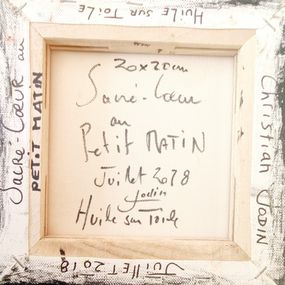 HUILE SUR TOILE
Sacré-Cœur au
PETIT MATIN
20x20cm
Sacré-Cœur
au
Petit MATIN
Juillet 2018
Jodin
Huile sur Toile
Christian JODIN
JUILLET 2018